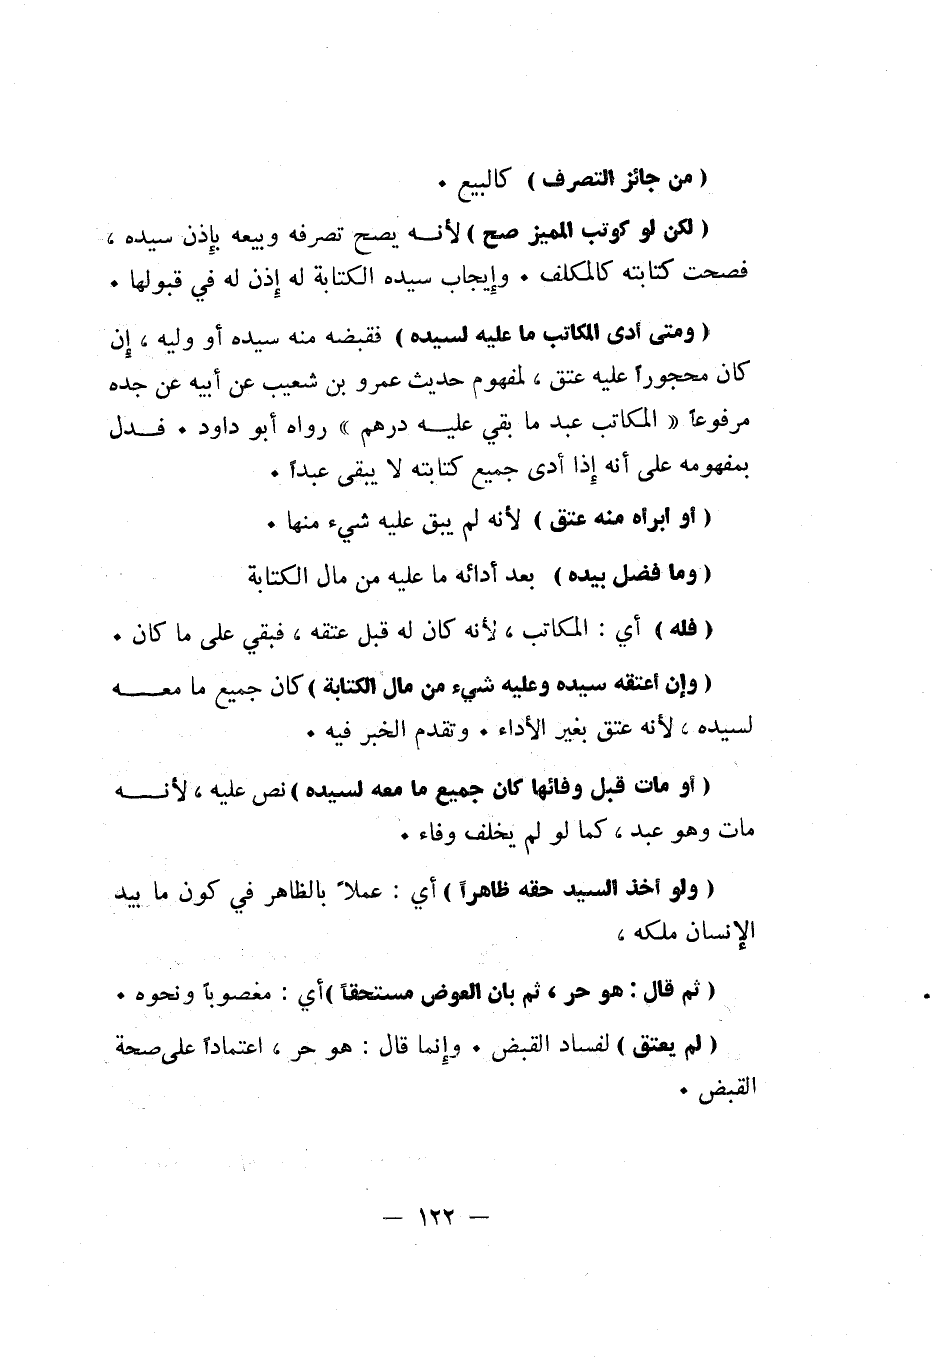 ( من جائز التصرف ) كالبيع .
( لكن لو كوتب المميز صح ) لأنه يصح تصرفه وبيعه بإذن سيده ،
فصحت كتابته كالمكلف . وإيجاب سيده الكتابة له إذن له في قبولها .
( ومتى أدى المكاتب ما عليه لسيده ) فقبضه منه سيده أو وليه ، إن
كان محجوراً عليه عتق ، لمفهوم حديث عمرو بن شعيب عن أبيه عن جده
مرفوعاً « المكاتب عبد ما بقي عليه درهم » رواه أبو داود . فدل
بمفهومه على أنه إذا أدى جميع كتابته لا يبقى عبداً .
( أو أبرأه منه عتق ) لأنه لم يبق عليه شيء منها .
( وما فضل بيده ) بعد أدائه ما عليه من مال الكتابة
( فله ) أي : المكاتب ، لأنه كان له قبل عتقه ، فبقي على ما كان .
( وإن أعتقه سيده وعليه شيء من مال الكتابة ) كان جميع ما معه
لسيده ، لأنه عتق بغير الأداء . وتقدم الخبر فيه .
( أو مات قبل وفائها كان جميع ما معه لسيده ) نص عليه ، لأنه
مات وهو عبد ، كما لو لم يخلف وفاء .
( ولو أخذ السيد حقه ظاهراً ) أي : عملاً بالظاهر في كون ما بيد
الإنسان ملكه ،
( ثم قال : هو حر ، ثم بان العوض مستحقاً ) أي : مغصوباً ونحوه .
( لم يعتق ) لفساد القبض . وإنما قال : هو حر ، اعتماداً على صحة
القبض .
— ١٢٢ —